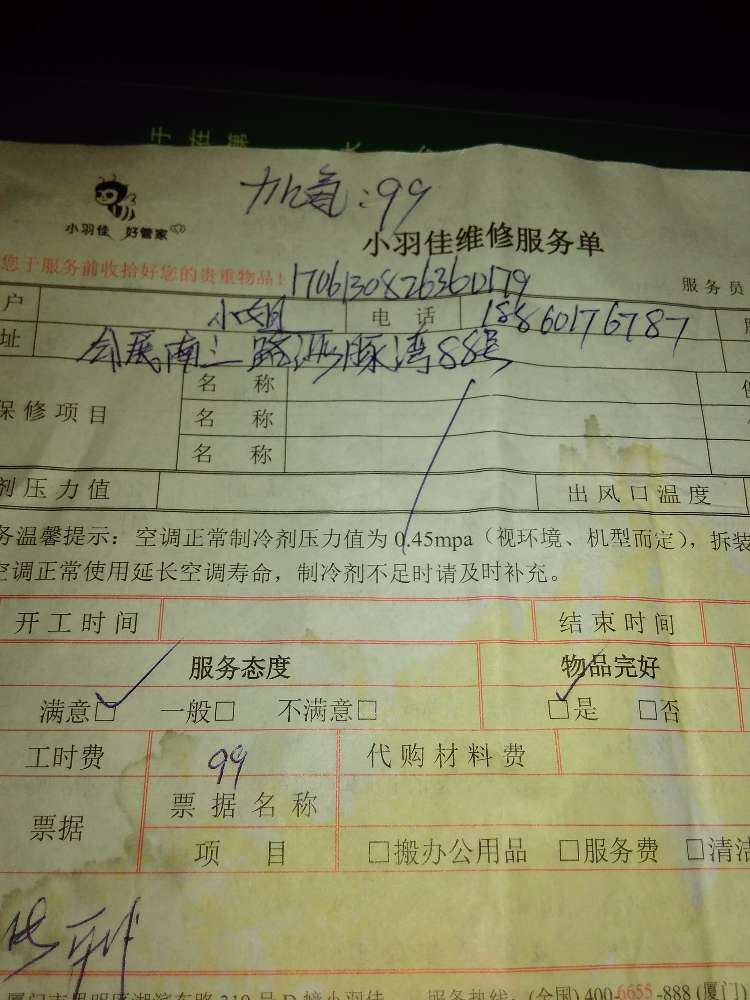 小羽佳 好管家
加氟:99
小羽佳维修服务单
您于服务前收拾好您的贵重物品!
17061308263601279
服务员
户 小姐 电话 18860176787
址 会展南三路海豚湾88号
保修项目
名称
名称
名称
剂压力值 出风口温度
务温馨提示:空调正常制冷剂压力值为0.45mpa(视环境、机型而定),拆装
空调正常使用延长空调寿命,制冷剂不足时请及时补充。
开工时间 结束时间
服务态度 物品完好
满意□ 一般□ 不满意□ □是 □否
工时费 99 代购材料费
票据 票据名称
项目 □搬办公用品 □服务费 □清洁
服务热线:(全国)400-6655-888(厦门)